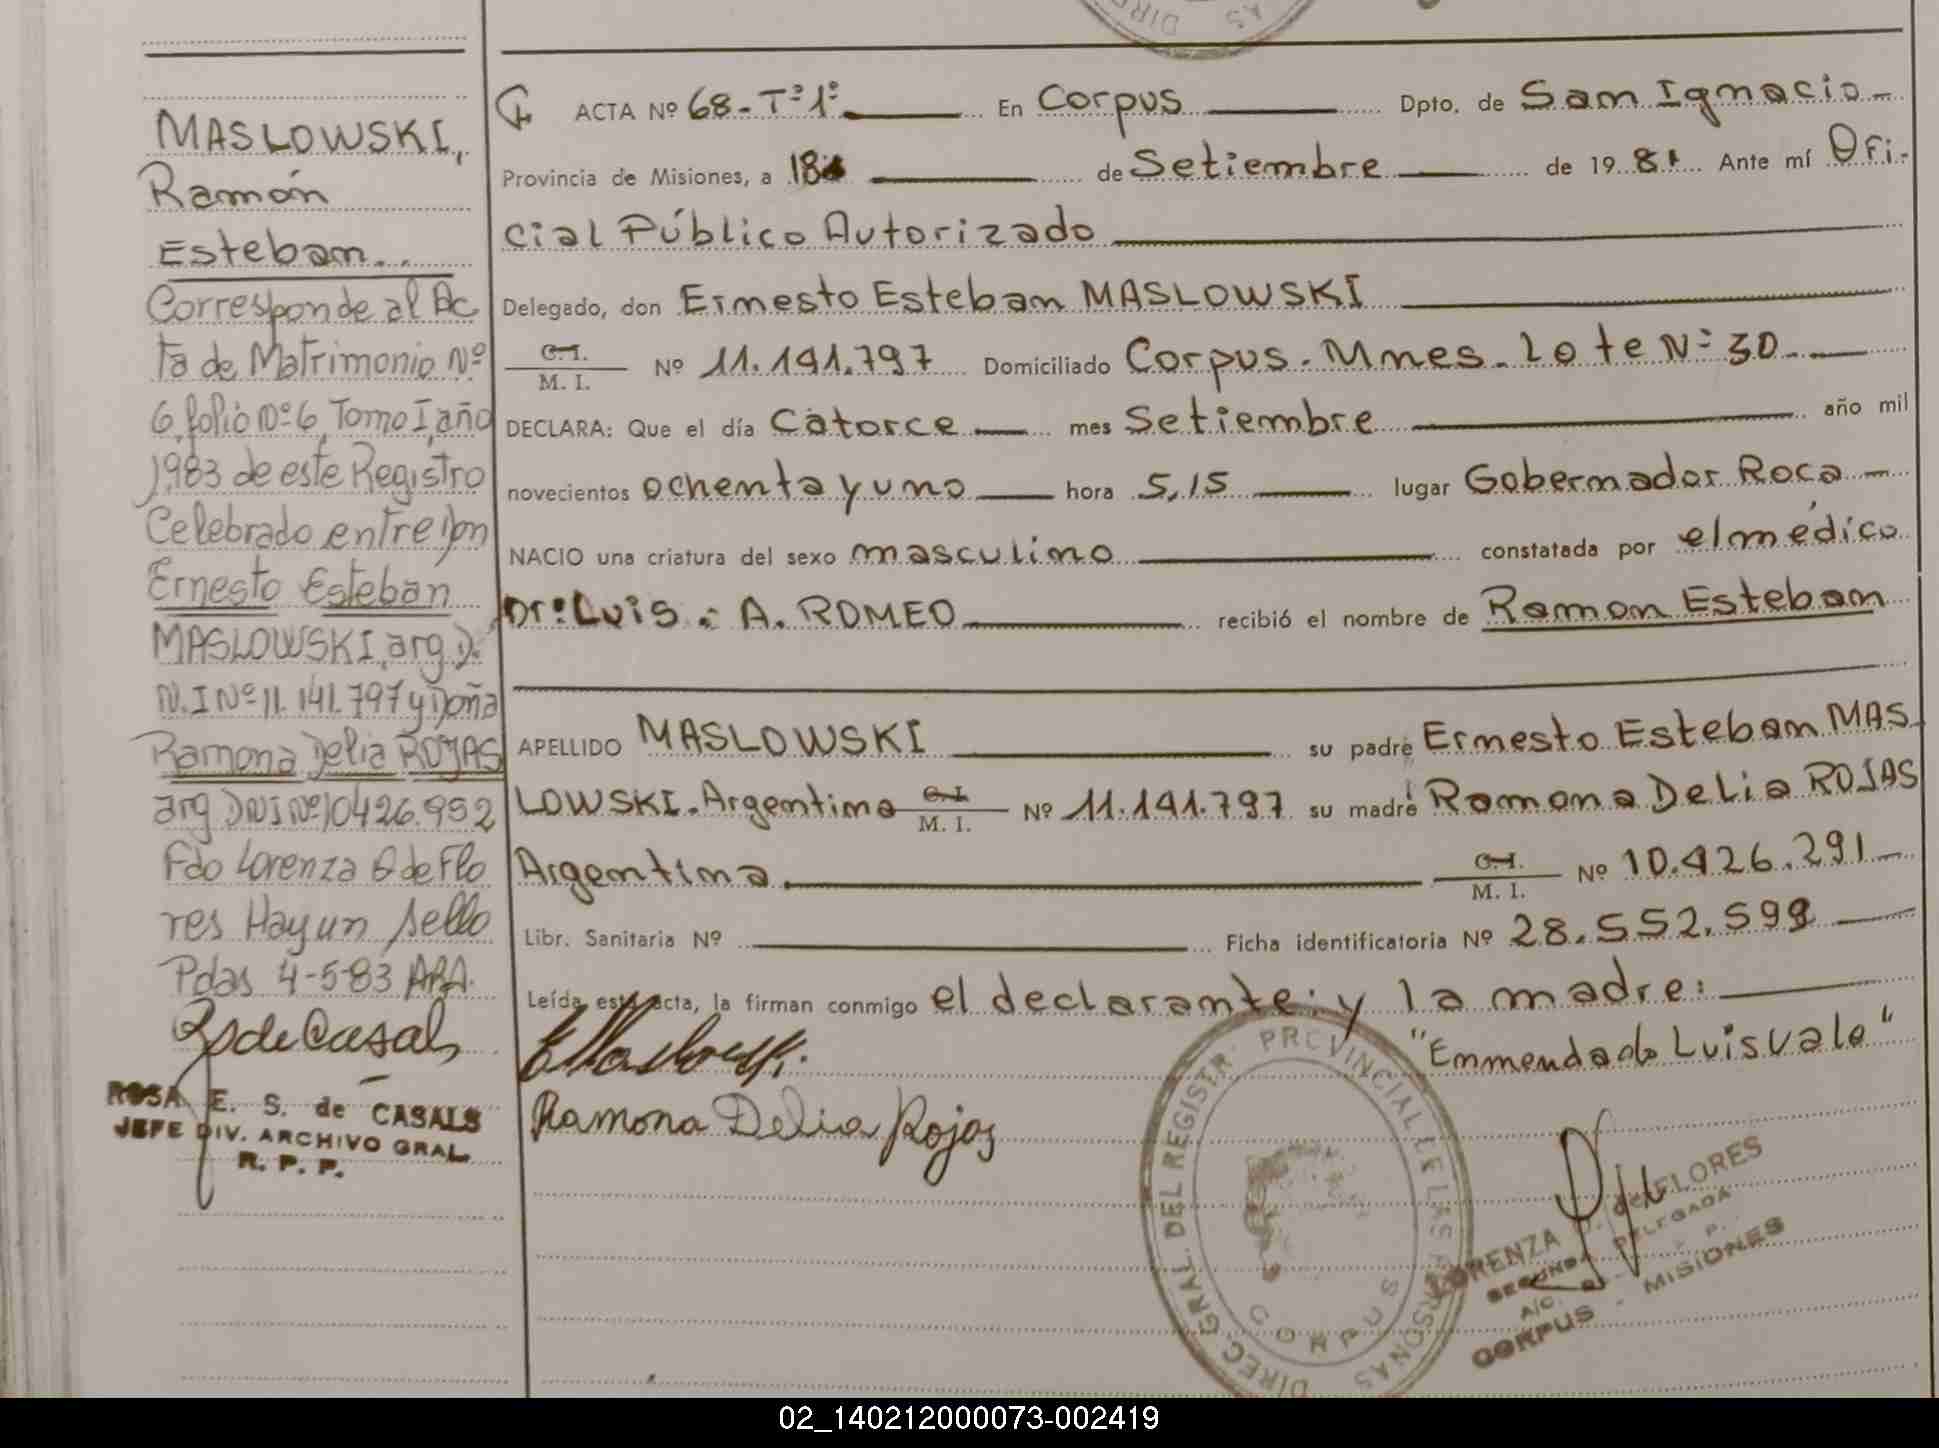 MASLOWSKI,
Ramón
Esteban..
Corresponde al Ac
ta de Matrimonio Nº
6, folio Nº 6, Tomo I, año
1983 de este Registro
Celebrado entre Don
Ernesto Esteban
MASLOWSKI, arg. D.
N.I Nº 11.141.797 y Doña
Ramona Delia ROJAS
arg DNI Nº 10426.952
Fdo Lorenza de Flo
res Hay un sello
Pdas 4-5-83
ROSA E. S. de CASALS
JEFE DIV. ARCHIVO GRAL.
R. P. P.
ACTA Nº 68-Tº1º En Corpus Dpto. de San Ignacio
Provincia de Misiones, a 18 de Setiembre de 1981 Ante mí Ofi-
cial Público Autorizado
Delegado, don Ernesto Esteban MASLOWSKI
C.I. M. I. Nº 11.141.797 Domiciliado Corpus. Mnes. Lote Nº 30
DECLARA: Que el día Catorce mes Setiembre año mil
novecientos ochenta y uno hora 5,15 lugar Gobernador Roca
NACIO una criatura del sexo masculino constatada por el médico
Dr: Luis: A. ROMEO recibió el nombre de Ramon Esteban
APELLIDO MASLOWSKI su padre Ernesto Esteban MAS
LOWSKI. Argentino C.I. M. I. Nº 11.141.797 su madre Ramona Delia ROJAS
Argentina C.I. M. I. Nº 10.426.291
Libr. Sanitaria Nº Ficha identificatoria Nº 28.552.599
Leída esta acta, la firman conmigo el declarante: y la madre:
"Emmendado Luis vale"
Ramona Delia Rojas
DIREC. GRAL. DEL REGISTR. PROVINCIAL DE LAS PERSONAS
CORPUS
LORENZA de FLORES
SEGUNDA DELEGADA
A/C. R. P. P.
CORPUS - MISIONES
02_140212000073-002419